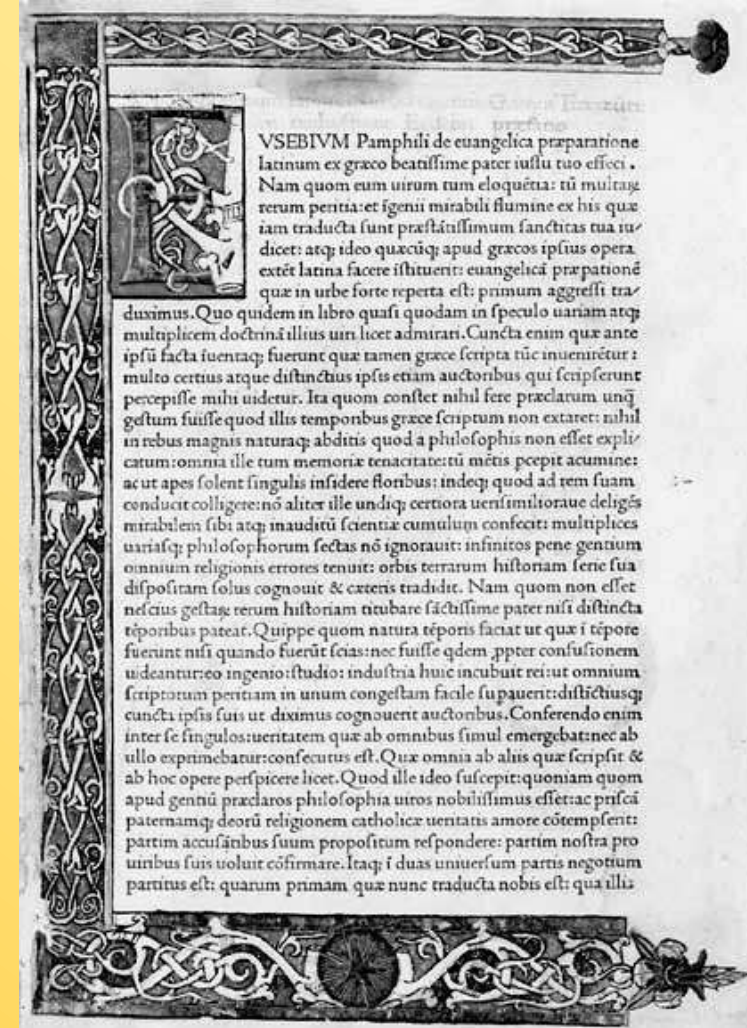 EVSEBIVM Pamphili de euangelica præparatione
latinum ex græco beatissime pater iussu tuo effeci.
Nam quom eum uirum tum eloquẽtia: tũ multaꝝ
rerum peritia: et ĩgenii mirabili flumine ex his quæ
iam traducta sunt præstãtissimum sanctitas tua iu/
dicet: atqꝫ ideo quæcũqꝫ apud græcos ipsius opera
extẽt latina facere ĩstituerit: euangelicã præpationẽ
quæ in urbe forte reperta est: primum aggressi tra/
duximus. Quo quidem in libro quasi quodam in speculo uariam atqꝫ
multiplicem doctrinã illius uiri licet admirari. Cuncta enim quæ ante
ipsũ facta ĩuentaqꝫ fuerunt quæ tamen græce scripta tũc inuenirẽtur:
multo certius atque distinctius ipsis etiam auctoribus qui scripserunt
percepisse mihi uidetur. Ita quom constet nihil fere præclarum unq̃
gestum fuisse quod illis temporibus græce scriptum non extaret: nihil
in rebus magnis naturaqꝫ abditis quod a philosophis non esset expli/
catum: omnia ille tum memoriæ tenacitate: tũ mẽtis pcepit acumine:
ac ut apes solent singulis insidere floribus: indeqꝫ quod ad rem suam
conducit colligere: nõ aliter ille undiqꝫ certiora uerisimilioraue deligẽs
mirabilem sibi atqꝫ inauditũ scientiæ cumulum confecit: multiplices
uariasqꝫ philosophorum sectas nõ ignorauit: infinitos pene gentium
omnium religionis errores tenuit: orbis terrarum historiam serie sua
dispositam solus cognouit & cæteris tradidit. Nam quom non esset
nescius gestaꝝ rerum historiam titubare sãctissime pater nisi distincta
tẽporibus pateat. Quippe quom natura tẽporis faciat ut quæ ĩ tẽpore
fuerunt nisi quando fuerũt scias: nec fuisse qdem ꝓpter confusionem
uideantur: eo ingenio: studio: industria huic incubuit rei: ut omnium
scriptorum peritiam in unum congestam facile supauerit: distĩctiusqꝫ
cuncta ipsis suis ut diximus cognouerit auctoribus. Conferendo enim
inter se singulos: ueritatem quæ ab omnibus simul emergebat: nec ab
ullo exprimebatur: consecutus est. Quæ omnia ab aliis quæ scripsit &
ab hoc opere perspicere licet. Quod ille ideo suscepit: quoniam quom
apud gentiũ præclaros philosophia uiros nobilissimus esset: ac priscã
paternamqꝫ deorũ religionem catholicæ ueritatis amore cõtempserit:
partim accusãtibus suum propositum respondere: partim nostra pro
uiribus suis uoluit cõfirmare. Itaqꝫ ĩ duas uniuersum partis negotium
partitus est: quarum primam quæ nunc traducta nobis est: qua illis